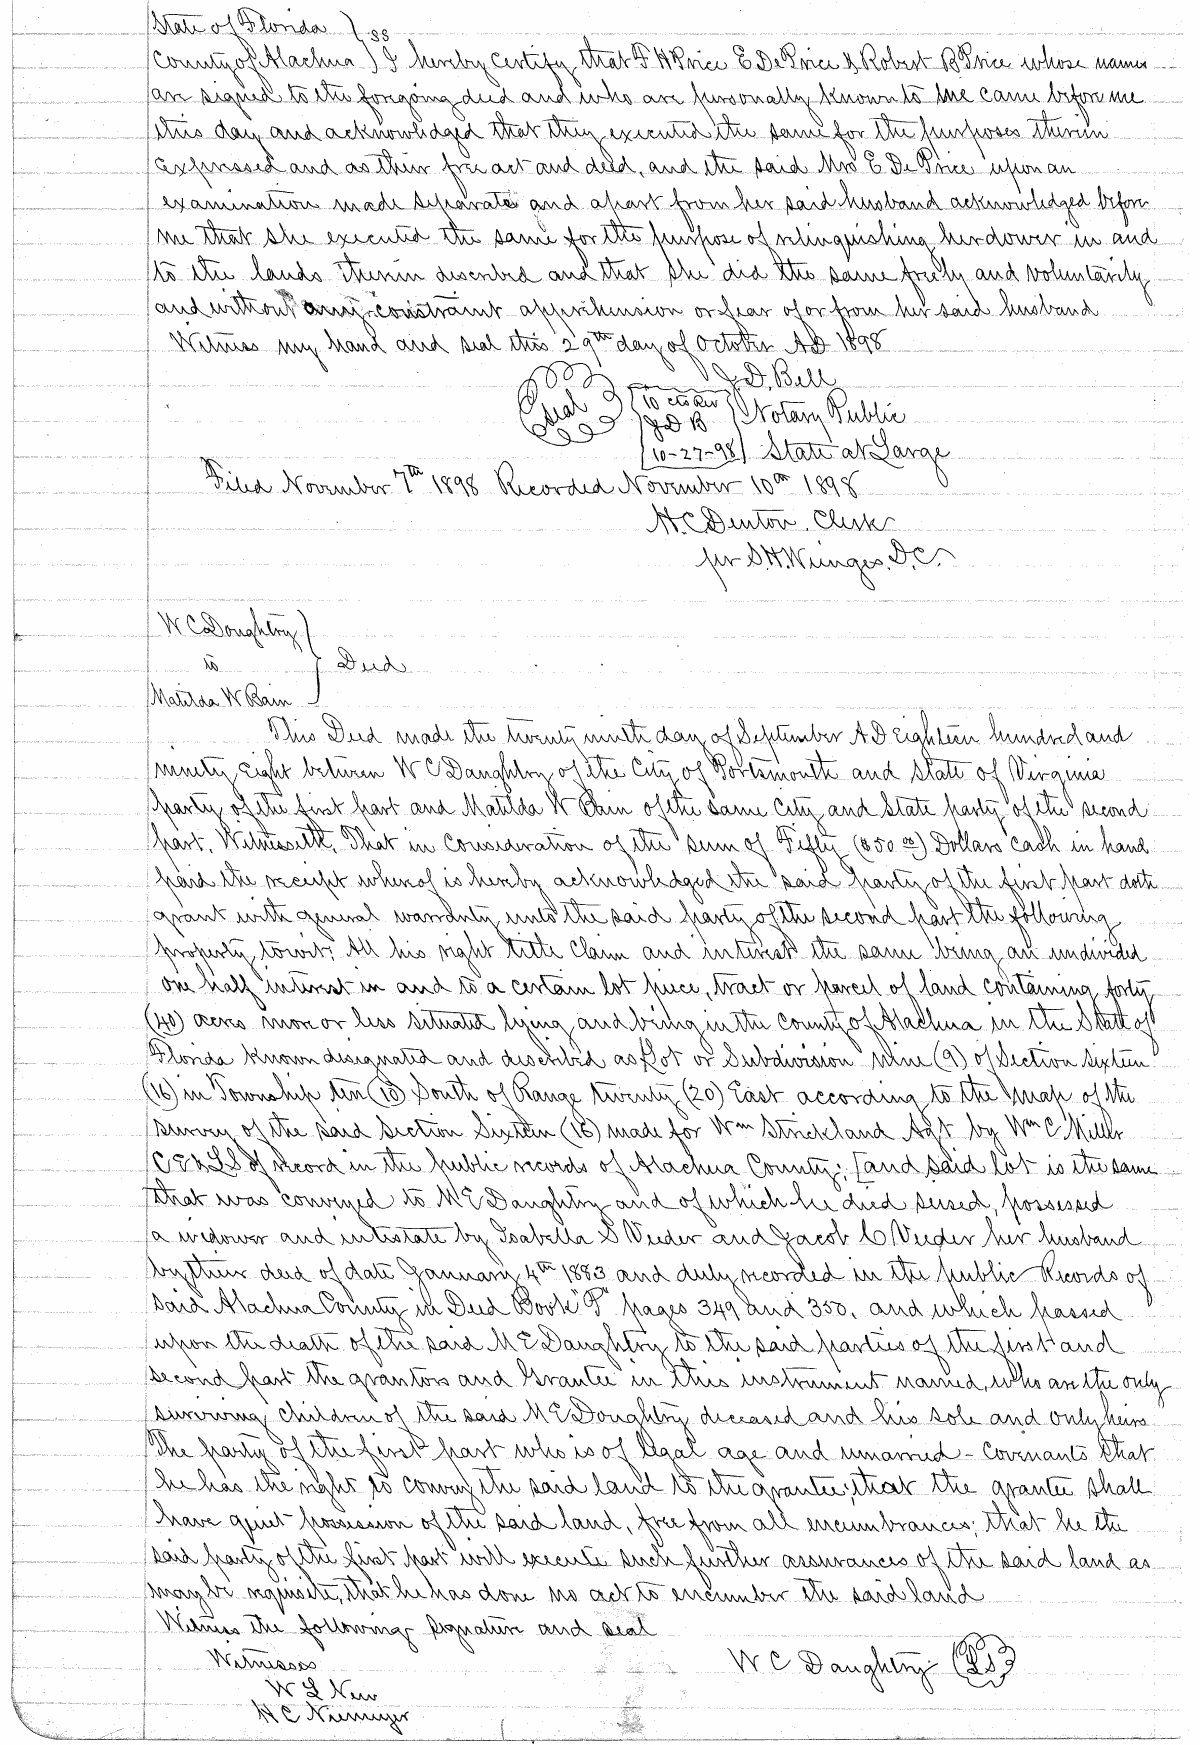 State of Florida } ss
County of Alachua } I hereby certify that F H Price E De Price & Robert B Price whose names
are signed to the foregoing deed and who are personally known to me came before me
this day and acknowledged that they executed the same for the purposes therein
expressed and as their free act and deed, and the said Mrs E De Price upon an
examination made separate and apart from her said husband acknowledged before
me that she executed the same for the purpose of relinquishing her dower in and
to the lands therein described and that she did the same freely and voluntarily
and without any constraint apprehension or fear of or from her said husband
Witness my hand and seal this 29th day of October A.D 1898
J. D. Bell
Seal 10 ct Rev Notary Public
J D B
10-27-98 State at Large
Filed November 7th 1898 Recorded November 10th 1898
H. C. Denton, Clerk
per S. H. Wienges, D. C.
W C Doughtry
to } Deed
Matilda W Bain
This Deed made the twenty ninth day of September A D Eighteen hundred and
ninety Eight between W C Daughtry of the City of Portsmouth and State of Virginia
party of the first part and Matilda W Bain of the same City and State party of the second
part, Witnesseth, That in consideration of the sum of Fifty ($50 00) Dollars cash in hand
paid the receipt whereof is hereby acknowledged the said party of the first part doth
grant with general warranty unto the said party of the second part the following
property, towit: All his right title claim and interest the same being an undivided
one half interest in and to a certain lot piece, tract or parcel of land containing forty
(40) acres more or less situated lying and being in the County of Alachua in the State of
Florida known designated and described as Lot or Subdivision nine (9) of Section Sixteen
(16) in Township ten (10) South of Range twenty (20) East according to the map of the
survey of the said Section Sixteen (16) made for Wm Strickland Agt by Wm C Miller
C E & L S of record in the public records of Alachua County; [and said lot is the same
that was conveyed to M E Daughtry and of which he died seised, possessed
a widower and intestate by Isabella S Veeder and Jacob C Veeder her husband
by their deed of date January 4th 1883 and duly recorded in the public Records of
said Alachua County in Deed Book "P" pages 349 and 350, and which passed
upon the death of the said M E Daughtry to the said parties of the first and
second part the grantors and Grantee in this instrument named, who are the only
surviving children of the said M E Doughtry deceased and his sole and only heirs
The party of the first part who is of legal age and unmarried - covenants that
he has the right to convey the said land to the grantee; that the grantee shall
have quiet possession of the said land, free from all encumbrances; that he the
said party of the first part will execute such further assurances of the said land as
may be requisite, that he has done no act to encumber the said land
Witness the following signature and seal
Witnesses W C Daughtry (LS)
W L New
H C Niemeyer